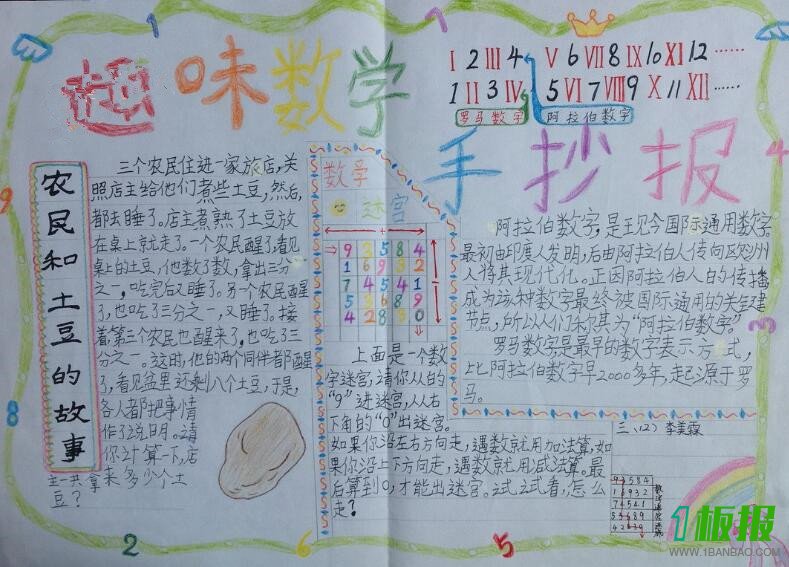 趣味数学
手抄报
I 2 III 4 V 6 VII 8 IX 10 XI 12 ……
1 II 3 IV 5 VI 7 VIII 9 X 11 XII ……
罗马数字 阿拉伯数字
农民和土豆的故事
三个农民住进一家旅店,关
照店主给他们煮些土豆,然后,
都去睡了。店主煮熟了土豆放
在桌上就走了。一个农民醒了,看见
桌上的土豆,他数了数,拿出三分
之一,吃完后又睡了。另一个农民醒
了,也吃了三分之一,又睡了。接
着第三个农民也醒来了,也吃了三
分之一。这时,他的两个同伴都醒
了,看见盆里还剩八个土豆,于是,
各人都把事情
作了说明。请
你计算一下,店
主一共拿来多少个土
豆?
数学
迷宫
+
9 3 5 8 4
1 6 9 3 2
7 4 5 4 1
5 3 6 8 9
4 2 8 3 0
上面是一个数
字迷宫,请你从白的
"9"进迷宫,从右
下角的"0"出迷宫。
如果你没左右方向走,遇数就用加法算,如
果你没上下方向走,遇数就用减法算。最
后算到0,才能出迷宫。试试看,怎么
走?
阿拉伯数字,是现今国际通用数字
最初由印度人发明,后由阿拉伯人传向欧洲
人将其现代化。正因阿拉伯人的传播
成为该种数字最终被国际通用的关键
节点,所以人们称其为"阿拉伯数字"。
罗马数字,是最早的数字表示方式,
比阿拉伯数字早2000多年,起源于罗
马。
三、(2) 李美霖
1
7
4
3
9
8
2
6
5
1板报
WWW.1BANBAO.COM